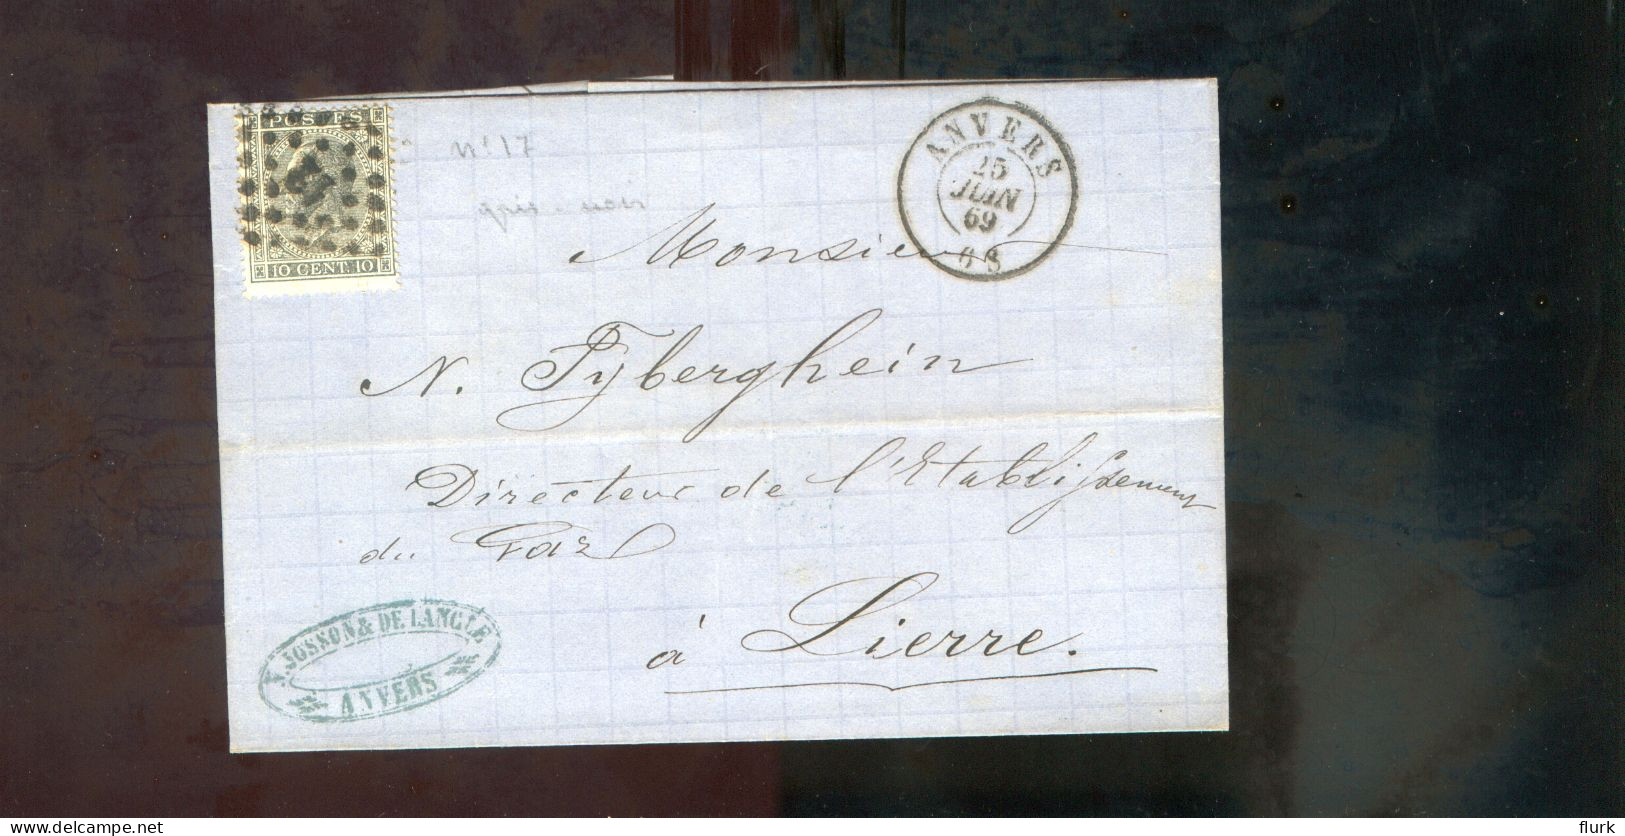 POSTES
10 CENT. 10
N° 17
gris-noir
ANVERS
25
JUIN
69
6 S
Monsieur
N. Tyberghein
Directeur de l'Etablissement
du Gaz
à Lierre.
JOSSON & DE LANGLE
ANVERS
delcampe.net
flurk